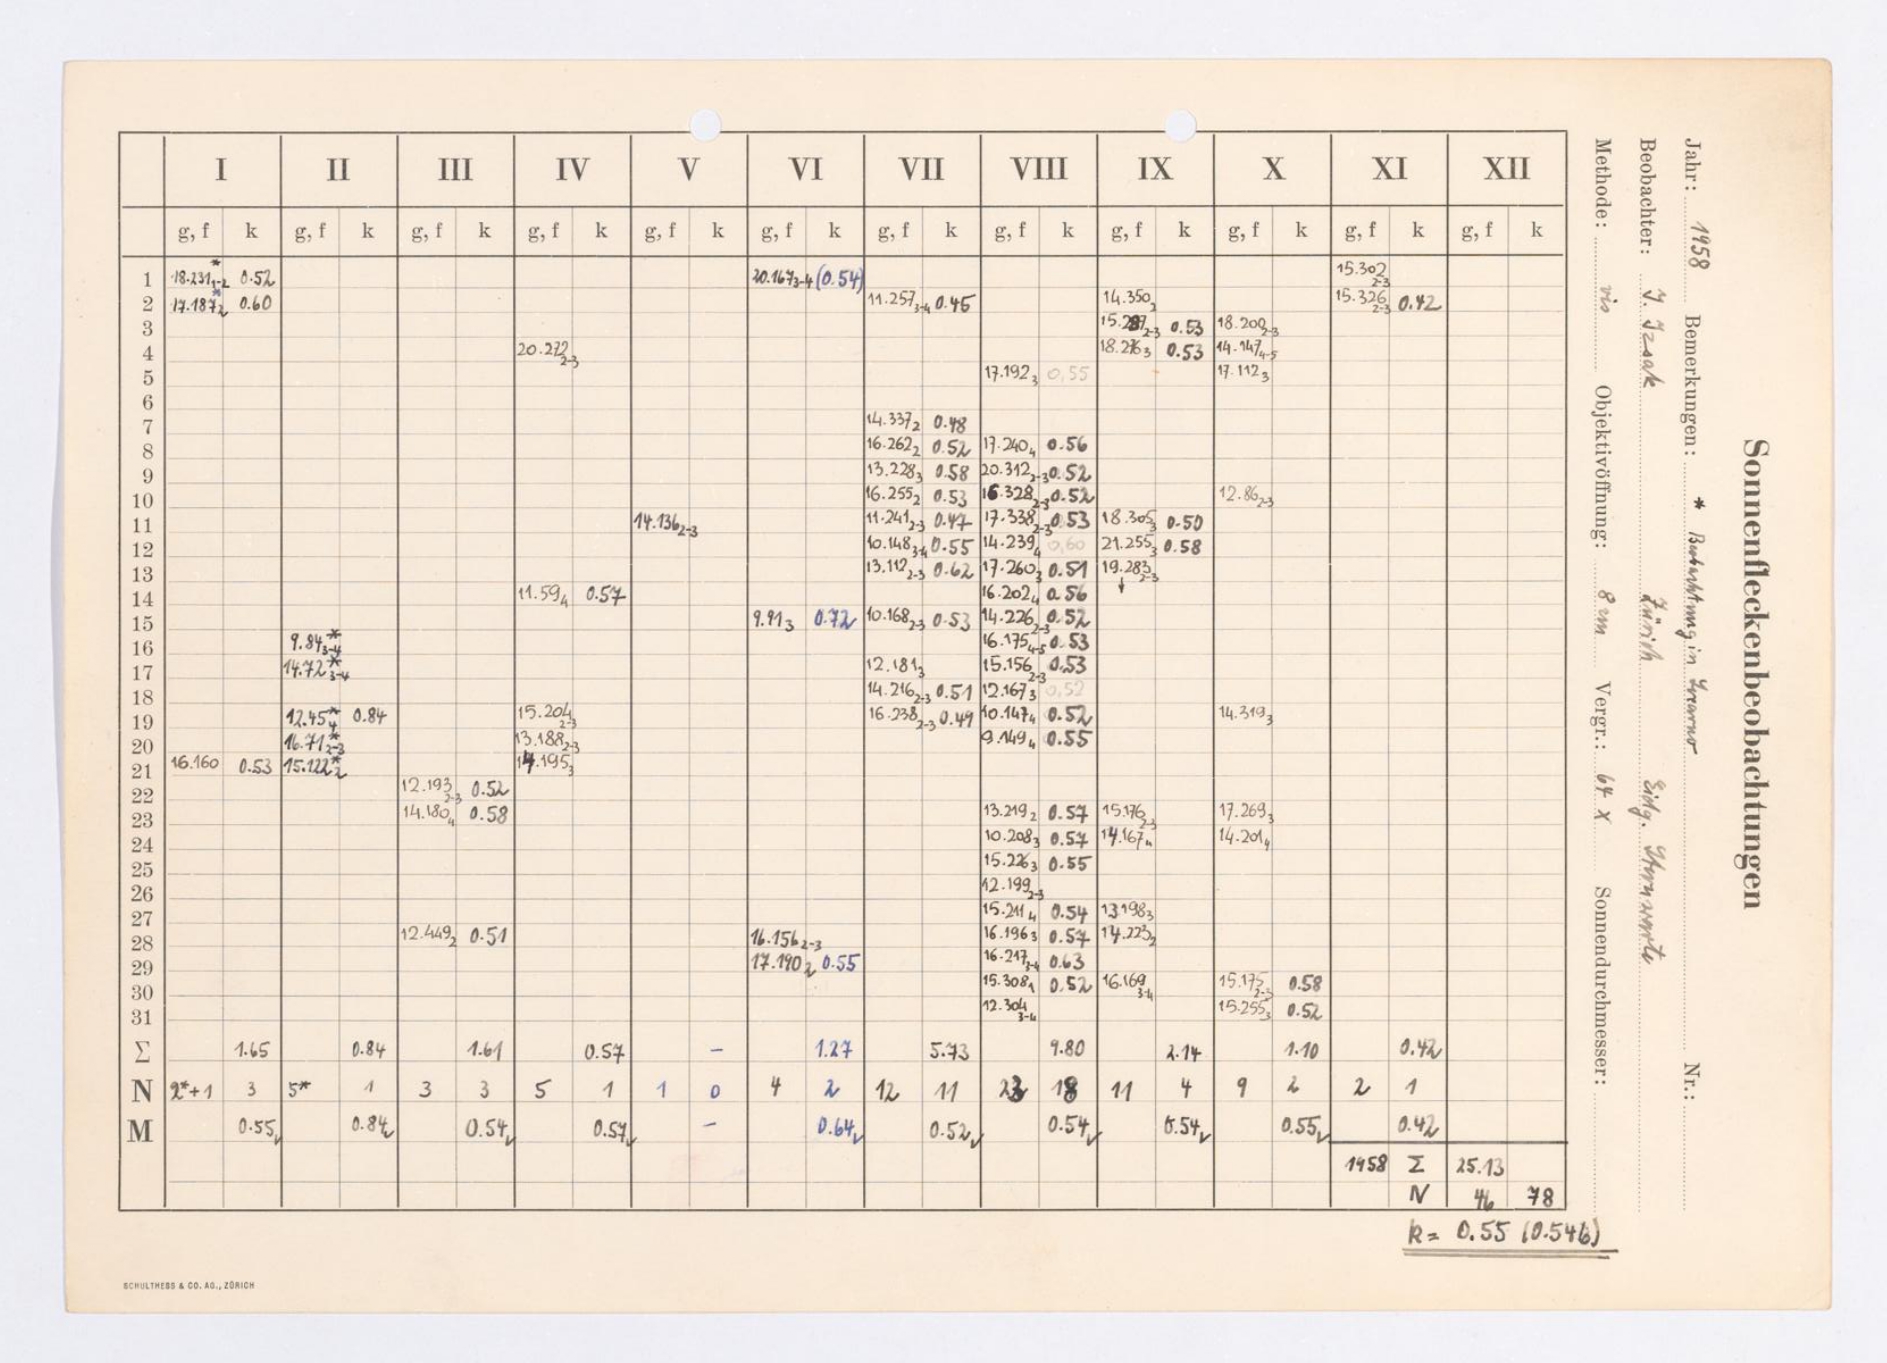 Sonnenfleckenbeobachtungen
Jahr: 1958 Bemerkungen: * Beobachtung in Locarno Nr.:
Beobachter: J. Izsak Zürich Eidg. Sternwarte
Methode: vis Objektivöffnung: 8 cm Vergr.: 64 x Sonnendurchmesser:
I II III IV V VI VII VIII IX X XI XII
g, f k g, f k g, f k g, f k g, f k g, f k g, f k g, f k g, f k g, f k g, f k g, f k
1 18.231* 1-2 0.52 20.167 3-4 (0.54) 15.302 2-3
2 17.187* 2 0.60 11.257 3-4 0.45 14.350 2 15.326 2-3 0.42
3 2-3 0.53 18.200 2-3
4 20.272 2-3 18.276 3 0.53 14.147 4-5
5 17.192 3 0.55 17.112 3
6
7 14.337 2 0.48
8 16.262 2 0.52 17.240 4 0.56
9 13.228 3 0.58 20.312 2-3 0.52
10 16.255 2 0.53 16.328 2-3 0.52 12.86 2-3
11 14.136 2-3 11.241 2-3 0.47 17.338 2-3 0.53 18.305 3 0.50
12 10.148 3-4 0.55 14.239 4 0.60 21.255 3 0.58
13 13.112 2-3 0.62 17.260 3 0.51 19.283 2-3
14 11.59 4 0.57 16.202 4 0.56 ↓
15 9.91 3 0.72 10.168 2-3 0.53 14.226 2-3 0.52
16 9.84* 3-4 16.175 4-5 0.53
17 14.72* 3-4 12.181 3 15.156 2-3 0.53
18 14.216 2-3 0.51 12.167 3 0.52
19 12.45* 4 0.84 15.204 2-3 16.238 2-3 0.49 10.147 4 0.52 14.319 3
20 16.71* 2-3 13.188 2-3 9.149 4 0.55
21 16.160 0.53 15.122* 2 14.195 3
22 12.193 2-3 0.52
23 14.180 4 0.58 13.219 2 0.57 15.176 2-3 17.269 3
24 10.208 3 0.57 14.167 4 14.201 4
25 15.226 3 0.55
26 12.199 2-3
27 15.211 4 0.54 13.198 3
28 12.449 2 0.51 16.156 2-3 16.196 3 0.57 14.223 2
29 17.190 2 0.55 16.217 3-4 0.63
30 15.308 0.52 16.169 3-4 15.175 2-3 0.58
31 12.304 3-4 15.255 3 0.52
Σ 1.65 0.84 1.61 0.57 – 1.27 5.73 9.80 2.14 1.10 0.42
N 2*+1 3 5* 1 3 3 5 1 1 0 4 2 12 11 23 18 11 4 9 2 2 1
M 0.55 0.84 0.54 0.57 – 0.64 0.52 0.54 0.54 0.55 0.42
1958 Σ 25.13
N 46 78
k = 0.55 (0.546)
SCHULTHESS & CO. AG., ZÜRICH